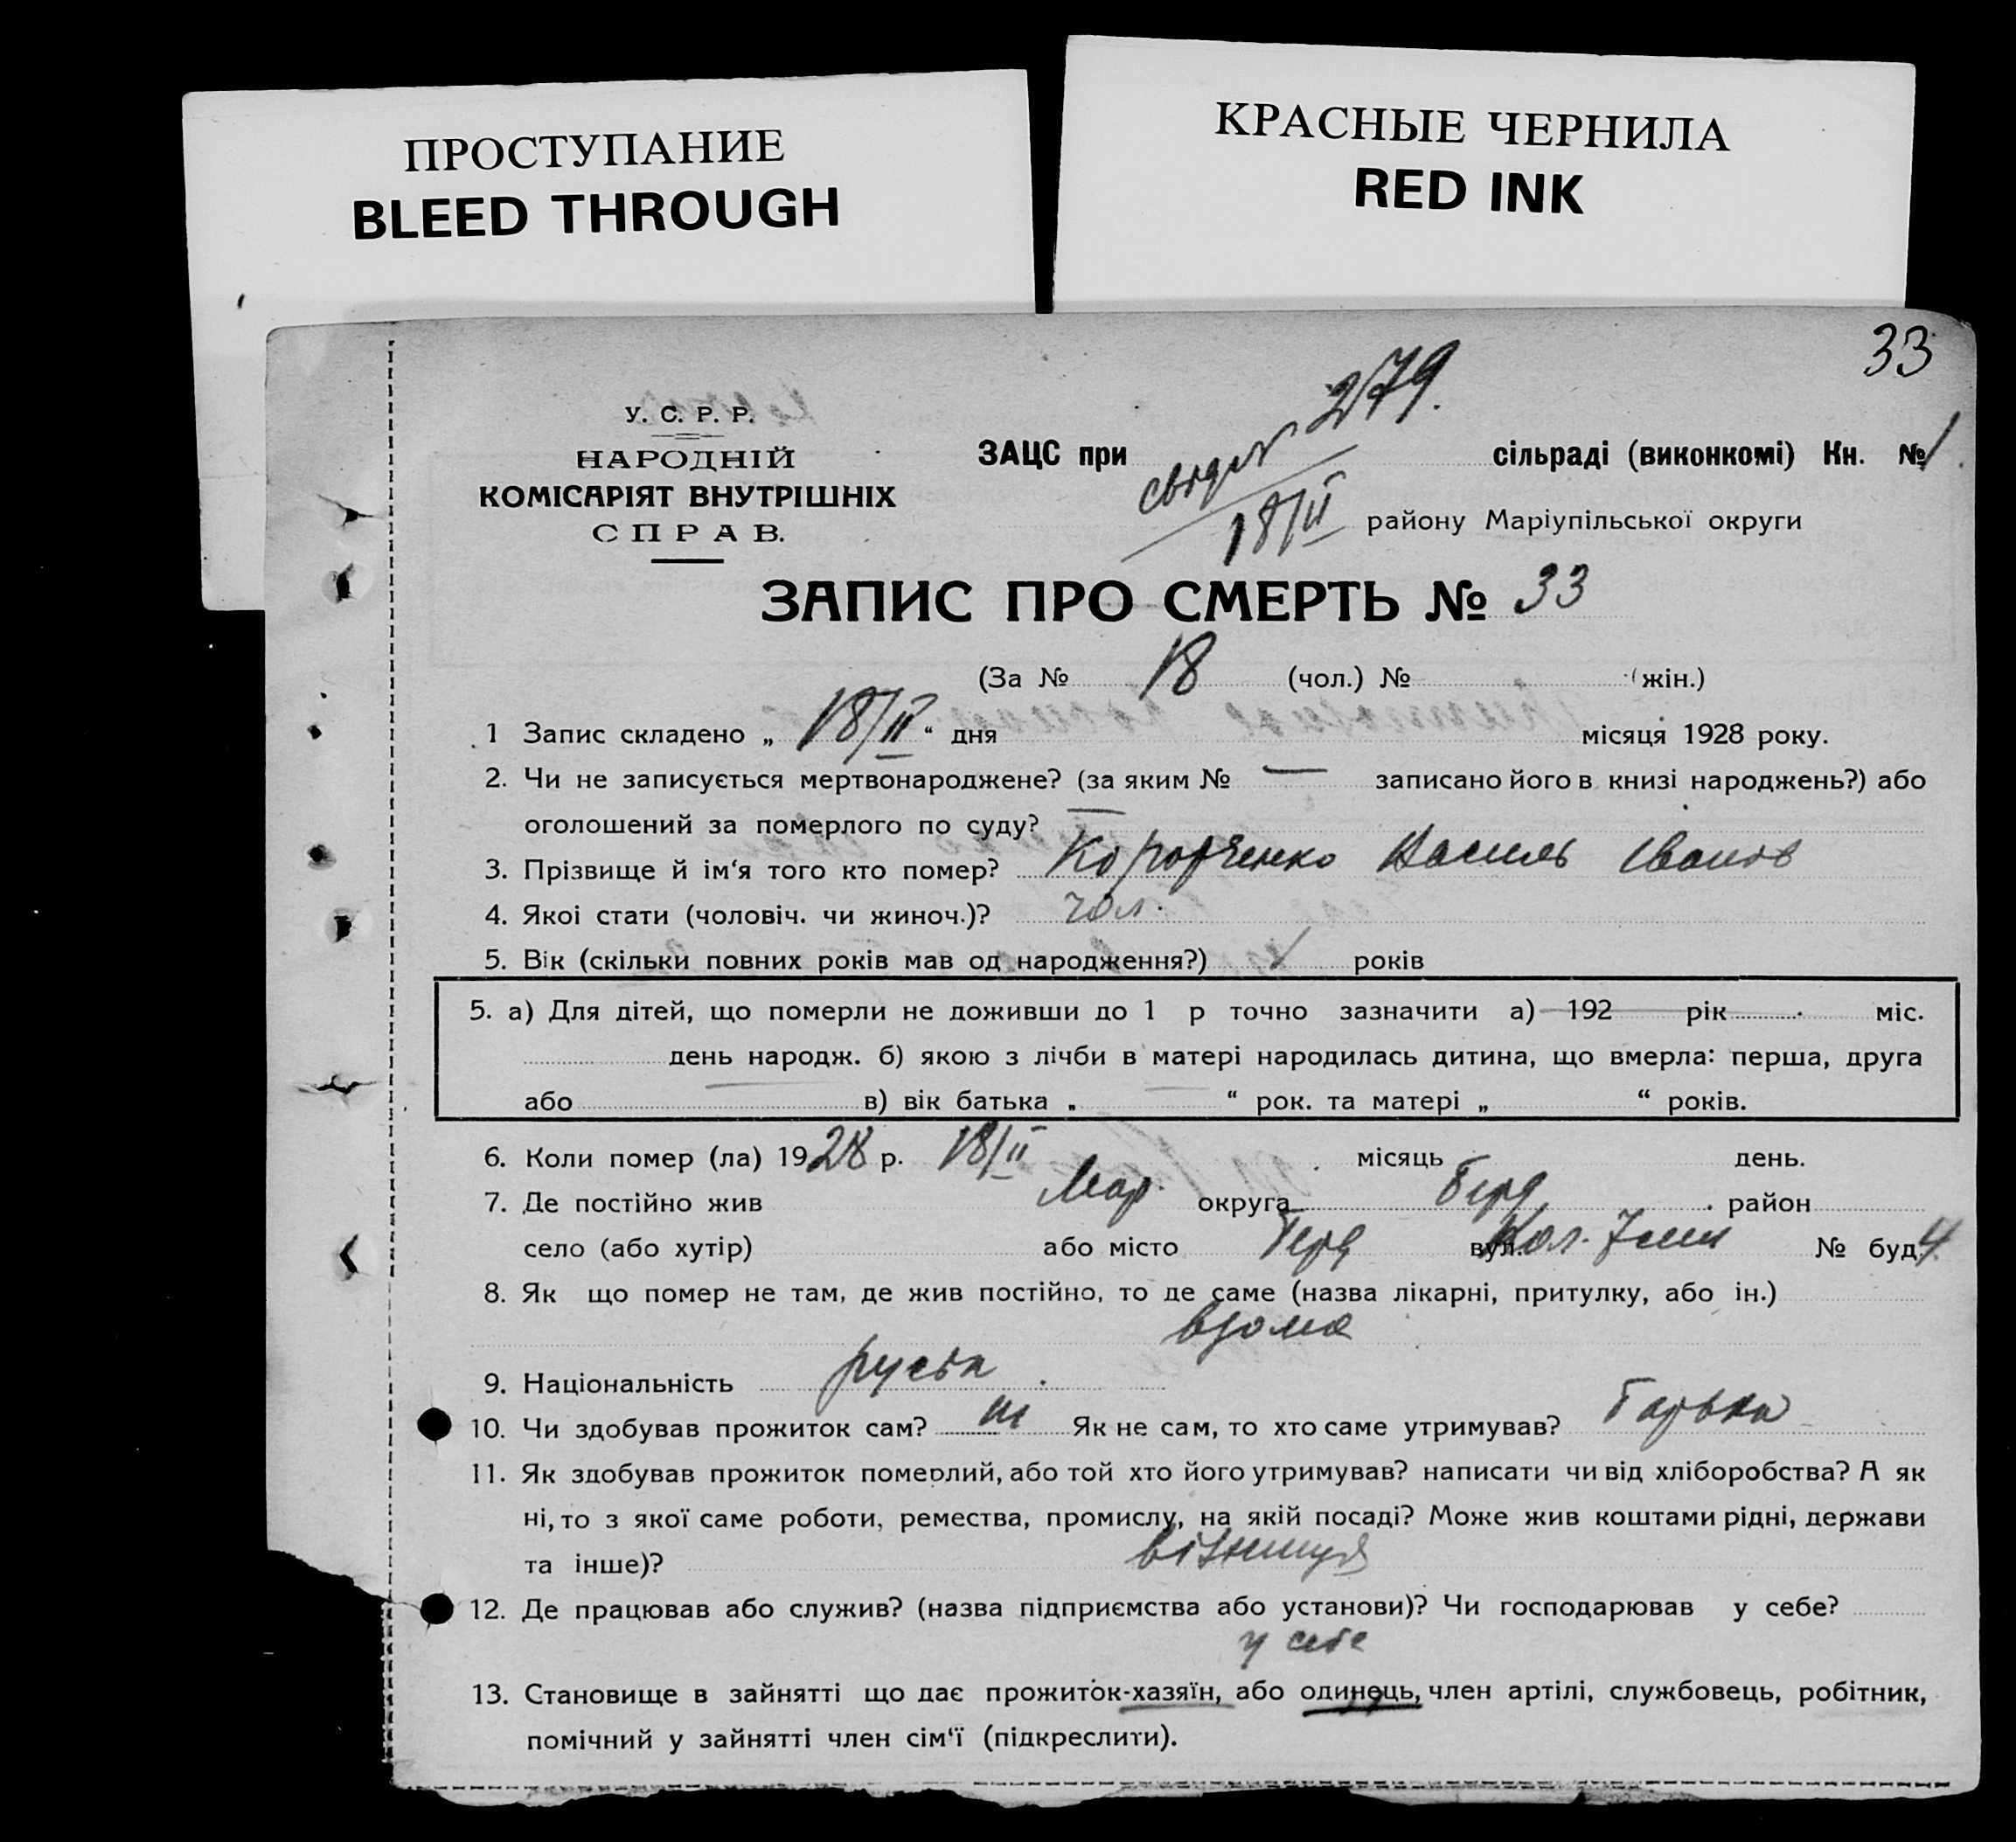 ПРОСТУПАНИЕ
BLEED THROUGH
КРАСНЫЕ ЧЕРНИЛА
RED INK
33
У. С. Р. Р.
НАРОДНІЙ
КОМІСАРІЯТ ВНУТРІШНІХ
СПРАВ.
279.
18/II
ЗАЦС при сільраді (виконкомі) Кн. № 1.
району Маріупільської округи
ЗАПИС ПРО СМЕРТЬ № 33
(За № 18 (чол.) № (жін.)
1 Запис складено „ 18/II “ дня місяця 1928 року.
2. Чи не записується мертвонароджене? (за яким № — записано його в книзі народжень?) або
оголошений за померлого по суду? —
3. Прізвище й ім‘я того кто помер? Василь Іванов
4. Якоі стати (чоловіч. чи жиноч.)? чол.
5. Вік (скільки повних років мав од народження?) років
5. а) Для дітей, що померли не доживши до 1 р точно зазначити а) 192 рік міс.
день народж. б) якою з лічби в матері народилась дитина, що вмерла: перша, друга
або в) вік батька „ “ рок. та матері „ “ років.
6. Коли помер (ла) 1928 р. 18/II місяць день.
7. Де постійно жив Мар. округа Берд. район
село (або хутір) або місто Берд вул. Кол. № буд. 4
8. Як що помер не там, де жив постійно, то де саме (назва лікарні, притулку, або ін.)
вдома
9. Національність руськ
10. Чи здобував прожиток сам? ні Як не сам, то хто саме утримував? Батько
11. Як здобував прожиток померлий, або той хто його утримував? написати чи від хліборобства? А як
ні, то з якої саме роботи, ремества, промислу, на якій посаді? Може жив коштами рідні, держави
та інше)? візниця
12. Де працював або служив? (назва підприємства або установи)? Чи господарював у себе?
у себе
13. Становище в зайнятті що дає прожиток-хазяїн, або одинець, член артілі, службовець, робітник,
помічний у зайнятті член сім‘ї (підкреслити).